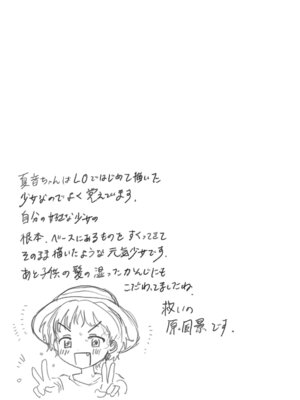 夏音ちゃんはLOではじめて描いた
少女なのでよく覚えています。
自分の好きな少女の
根本、ベースにあるものをすくってきて
そのまま描いたような元気少女です。
あと子供の髪の湿ったかんじにも
こだわってましたね。
救いの
原風景です。